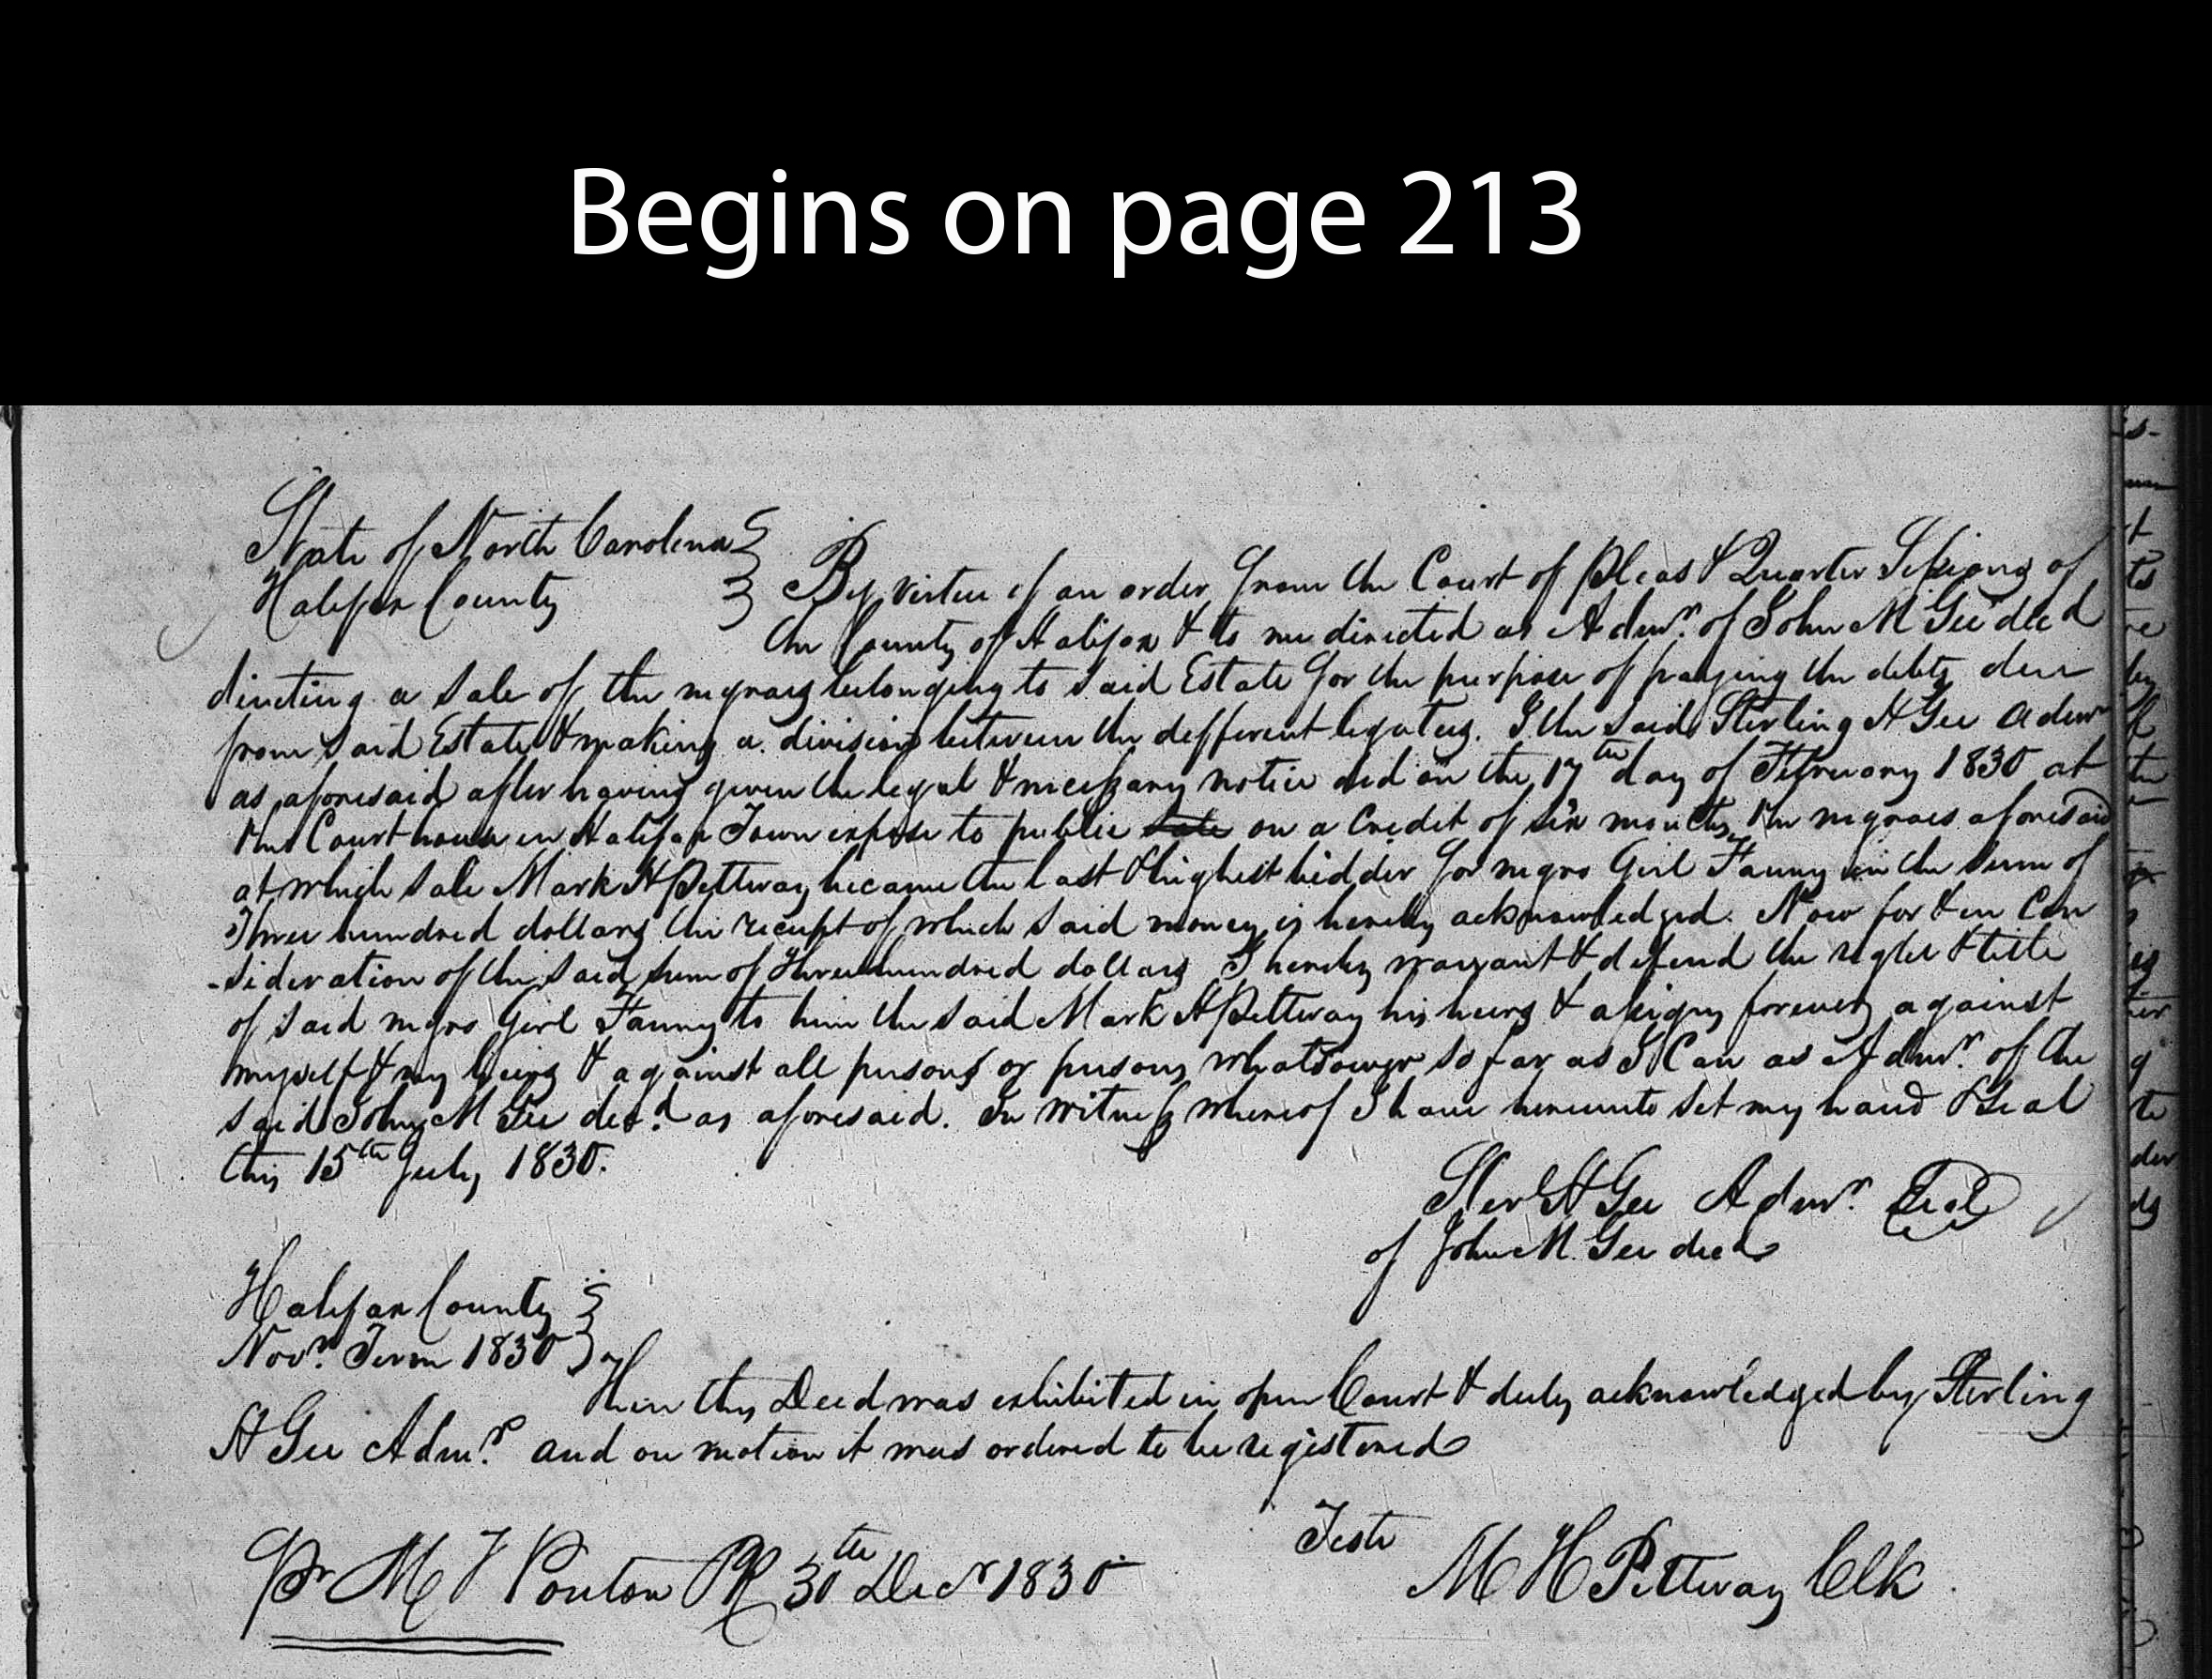 Begins on page 213
State of North Carolina
Halifax County
By virtue of an order from the Court of Pleas & Quarter Sessions of
the County of Halifax & to me directed as Admr. of John M Gee decd
directing a sale of the negroes belonging to said Estate for the purpose of paying the debts due
from said Estate & making a division between the different legatees. I the said Sterling H Gee Admr
as aforesaid after having given the legal & necessary notice did on the 17th day of February 1830 at
the Court house in Halifax Town expose to public sale on a Credit of six months the negroes aforesaid
at which sale Mark H Pettway became the last & highest bidder for negro Girl Fanny in the sum of
Three hundred dollars the receipt of which said money is hereby acknowledged. Now for & in Con
-sideration of the said sum of three hundred dollars I hereby warrant & defend the right & title
of said negro Girl Fanny to him the said Mark H Pettway his heirs & assigns forever against
myself & my heirs & against all persons or persons whatsoever so far as I Can as Admr. of the
said John M Gee decd. as aforesaid. In witness whereof I have hereunto set my hand & Seal
this 15th July 1830.
Sterl H Gee Admr. Seal
of John M. Gee decd
Halifax County
Novr. Term 1830
Then this Deed was exhibited in open Court & duly acknowledged by Sterling
H Gee Admr. and on motion it was ordered to be registered
Teste
M H Pettway Clk
Pr M T Ponton PR 30th Decr 1830